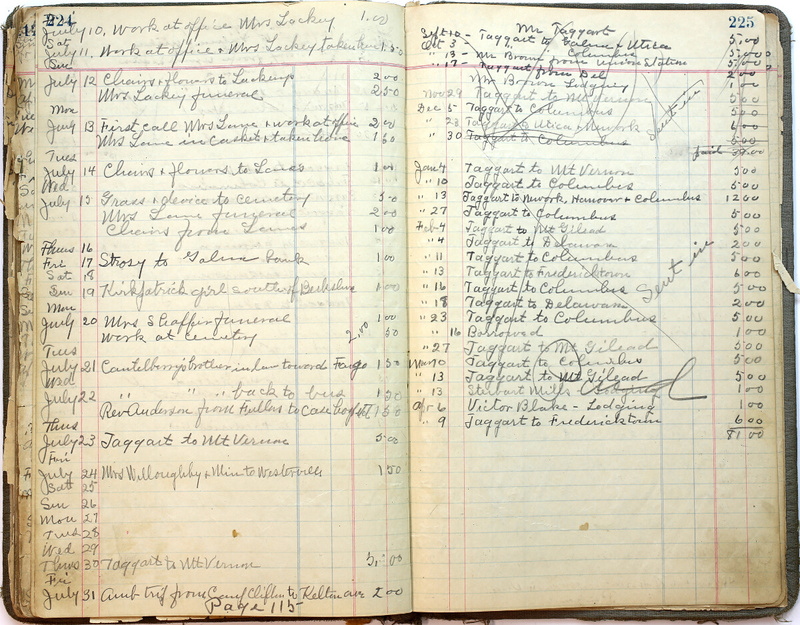 224
July 10, Work at office Mrs Lackey 1.00
Sat
July 11. Work at office & Mrs Lackey taken 1.50
Sun
July 12 Chairs & flowers to Lackeys 2 00
Mrs Lackey funeral 2 50
Mon
July 13 First call Mrs Lane & work at office 2 00
Mrs Lane in casket & taken 1 50
Tues
July 14 Chairs & flowers to Lanes 1 00
Wed
July 15 Grass & device to cemetery 50
Mrs Lane funeral 2 00
Chairs from Lanes 1 00
Thurs 16
Fri 17 to Galena 1 00
Sat 18
Sun 19 Kirkpatrick girl south of Berkshire 1 00
Mon
July 20 Mrs funeral 1 00
2.00
Work at cemetery 50
Tues
July 21 brother in law toward Fargo 1 50
Wed
July 22 " " " back to bus 1 50
Rev Anderson from Fullers to 1 50
Thurs
July 23 Taggart to Mt Vernon 5 00
Fri
July 24 Mrs Willoughby & Min to Westerville 1 50
Satt 25
Sun 26
Mon 27
Tues 28
Wed 29
Thurs 30 Taggart to Mt Vernon 5.00
Fri
July 31 Amb trip from to Kelton ave 2 00
Page 115
225
Mr Taggart
Sept 10 - Taggart to Galena & Utica 5.00
Oct 3 " " Columbus 5.00
" 13 - Mr Brown from Union Station 5.00
" 17 - Taggart from Del 2 00
Mr Brown Lodging 1 00
Nov 29 Taggart to Mt Vernon 5 00
Dec 5 Taggart to Columbus 5 00
" 23 Taggart to Utica & Newark 6 00
" 30 Taggart to Columbus 5 00
Sent in
paid 39.00
Jan 4 Taggart to Mt Vernon 5 00
" 10 Taggart to Columbus 5 00
" 13 Taggart to Newark, Hanover & Columbus 12 00
" 27 Taggart to Columbus 5 00
Feb 4 Taggart to Mt Gilead 5 00
" 4 Taggart to Delaware 2 00
" 11 Taggart to Columbus 5 00
" 13 Taggart to Fredericktown 6 00
" 16 Taggart to Columbus 5 00
" 18 Taggart to Delaware 2 00
" 23 Taggart to Columbus 5 00
Sent in
" 16 Borrowed 1 00
" 27 Taggart to Mt Gilead 5 00
Mar 10 Taggart to Columbus 5 00
" 13 Taggart to Mt Gilead 5 00
" 13 Stewart Mills Lodging 1 00
Apr 6 Victor Blake - Lodging 1 00
" 9 Taggart to Fredericktown 6 00
81 00